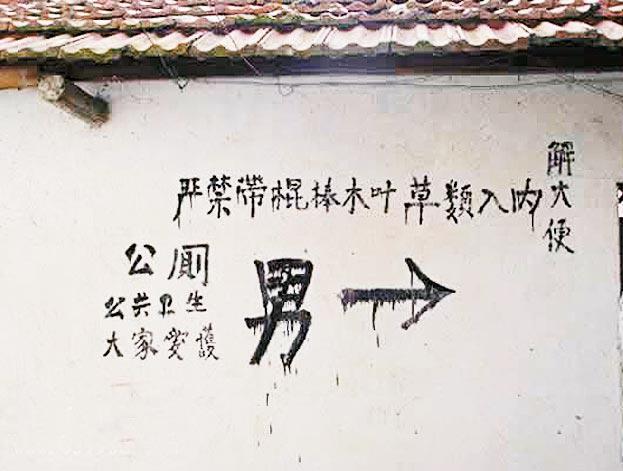 严禁帶棍棒木叶草類入内
解大便
公厠
公共卫生
大家愛護
男→